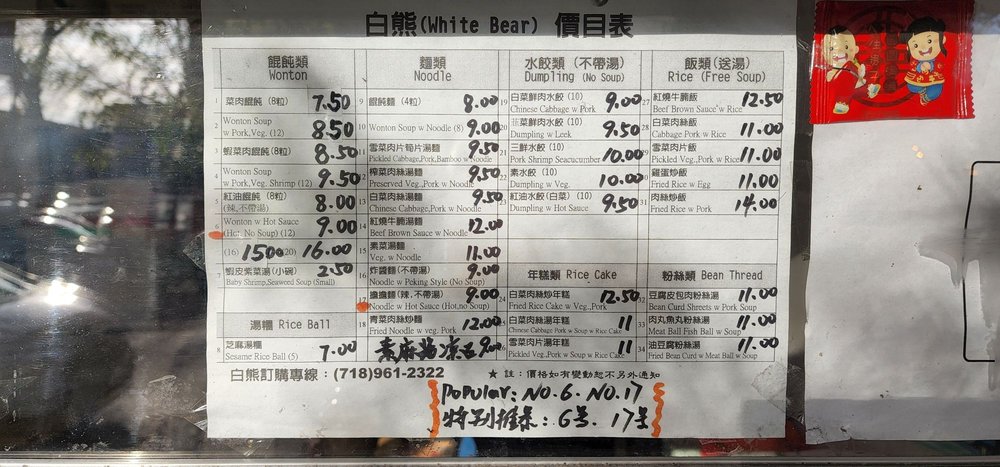 白熊(White Bear) 價目表
餛飩類
Wonton
1 菜肉餛飩 (8粒) 7.50
2 Wonton Soup
w Pork,Veg. (12) 8.50
3 蝦菜肉餛飩(8粒) 8.50
4 Wonton Soup
w Pork,Veg, Shrimp (12) 9.50
5 紅油餛飩 (8粒)
(辣,不帶湯) 8.00
6 Wonton w Hot Sauce
(Hot, No Soup) (12) 9.00
(16) 15.00 (20) 16.00
7 蝦皮紫菜湯(小碗) 2.50
Baby Shrimp,Seaweed Soup (Small)
湯糰 Rice Ball
8 芝麻湯糰
Sesame Rice Ball (5) 7.00
麵類
Noodle
9 餛飩麵 (4粒) 8.00
10 Wonton Soup w Noodle (8) 9.00
11 雪菜肉片筍片湯麵 9.50
Pickled Cabbage,Pork,Bamboo w Noodle
12 榨菜肉絲湯麵 9.50
Preserved Veg.,Pork w Noodle
13 白菜肉絲湯麵 9.50
Chinese Cabbage,Pork w Noodle
14 紅燒牛腩湯麵 12.00
Beef Brown Sauce w Noodle
15 素菜湯麵
Veg. w Noodle 11.00
16 炸醬麵(不帶湯) 9.00
Noodle w Peking Style (No Soup)
17 擔擔麵(辣,不帶湯) 9.00
Noodle w Hot Sauce (Hot,no Soup)
18 青菜肉絲炒麵
Fried Noodle w veg. Pork 12.00
水餃類 (不帶湯)
Dumpling (No Soup)
19 白菜鮮肉水餃 (10) 9.00
Chinese Cabbage w Pork
20 韮菜鮮肉水餃 (10) 9.50
Dumpling w Leek
21 三鮮水餃 (10)
Pork Shrimp Seacucumber 10.00
22 素水餃 (10)
Dumpling w Veg. 10.00
23 紅油水餃(白菜) (10)
Dumpling w Hot Sauce 9.50
年糕類 Rice Cake
24 白菜肉絲炒年糕 12.50
Fried Rice Cake w Veg.,Pork
25 白菜肉絲湯年糕 11
Chinese Cabbage Pork w Soup w Rice Cake
26 雪菜肉片湯年糕 11
Pickled Veg.,Pork w Soup w Rice Cake
飯類(送湯)
Rice (Free Soup)
27 紅燒牛腩飯 12.50
Beef Brown Sauce w Rice
28 白菜肉絲飯
Cabbage Pork w Rice 11.00
29 雪菜肉片飯
Pickled Veg.,Pork w Rice 11.00
30 雞蛋炒飯
Fried Rice w Egg 11.00
31 肉絲炒飯
Fried Rice w Pork 14.00
粉絲類 Bean Thread
32 豆腐皮包肉粉絲湯 11.00
Bean Curd Shreets w Pork Soup
33 肉丸魚丸粉絲湯 11.00
Meat Ball Fish Ball w Soup
34 油豆腐粉絲湯 11.00
Fried Bean Curd w Meat Ball w Soup
白熊訂購專線 : (718)961-2322
★ 註 : 價格如有變動恕不另外通知
Popular: NO.6. NO.17
特別推荐: 6号. 17号